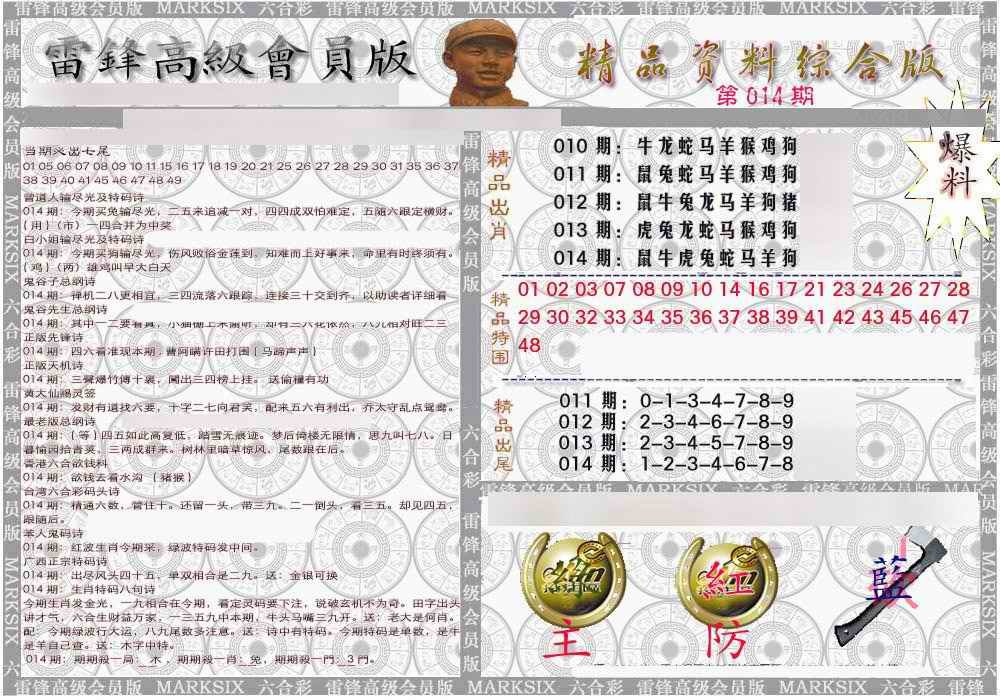 雷锋高级会员版 MARKSIX 六合彩 雷锋高级会员版 MARKSIX 六合彩 雷锋高级会员版 MARKSIX 六合彩 雷锋
雷鋒高級會員版
精品资料综合版
第 014 期
爆料
当期灵出七尾
01 05 06 07 08 09 10 11 15 16 17 18 19 20 21 25 26 27 28 29 30 31 35 36 37
38 39 40 41 45 46 47 48 49
曾道人输尽光及特码诗
014 期: 今期买兔输尽光，二五来追减一对，四四成双怕难定，五随六跟定横财。
{ 用 }（市）一四合并为中奖
白小姐输尽光及特码诗
014 期: 今期买狗输尽光，伤风败俗金莲到，知难而上好事来，命里有时终须有。
{ 鸡 }（两）雄鸡叫早大白天
鬼谷子总纲诗
014 期: 禅机二八更相宜，三四流落六跟踪，连接三十交到齐，以助读者详细看
鬼谷先生总纲诗
014 期: 其中一二要看真，小猫棚上来偷听，却有三六花依然，八九相对旺二三
正版先锋诗
014 期: 四六看准现本期，曹阿瞒许田打围 { 马蹄声声 }
正版天机诗
014 期: 三聲爆竹傳十裏，圍出三四榜上挂。 送偷糧有功
黄大仙赐灵签
014 期: 发财有道找六要，十字二七向君笑，配来五六有利出，乔太守乱点鸳鸯。
最老版总纲诗
014 期: { 等 } 四五如此高复低，踏雪无痕迹。梦后倚楼无限情，思九叫七八。日
暮愉四拾青荚，三两成群来。树林里暗草惊风，尾数跟在后。
香港六合欲钱料
014 期: 欲钱去看水沟 { 猪猴 }
台湾六合彩码头诗
014 期: 精通六数，管住十。还留一头，带三九。二一倒头，看三五。却见四五，
跟随后。
苯人鬼码诗
014 期: 红波生肖今期来，绿波特码发中间。
广西正宗特码诗
014 期: 出尽风头四十五，单双相合是二九。送: 金银可换
014 期: 生肖特码八句诗
今期生肖发金光，一九相合在今期，看定灵码要下注，说破玄机不为奇。田字出头
讲才气，六合生财益万家，一三五九中本期，牛头马嘴三九开。送: 老大是何肖。
配: 今期绿波行大运，八九尾数多注意。送: 诗中有特码。今期特码是单数，是牛
是羊自己查。送: 木字中特。
014 期: 期期殺一局: 木，期期殺一肖: 兔，期期殺一門: 3 門。
精品出肖
010 期: 牛龙蛇马羊猴鸡狗
011 期: 鼠兔蛇马羊猴鸡狗
012 期: 鼠牛兔龙马羊狗猪
013 期: 虎兔龙蛇马猴鸡狗
014 期: 鼠牛虎兔蛇马羊狗
精品特围
01 02 03 07 08 09 10 14 16 17 21 23 24 26 27 28
29 30 32 33 34 35 36 37 38 39 40 41 43 45 46 47
48
精品出尾
011 期: 0-1-3-4-7-8-9
012 期: 2-3-4-6-7-8-9
013 期: 2-3-4-5-7-8-9
014 期: 1-2-3-4-6-7-8
綠
主
紅
防
藍
雷锋高级会员版 MARKSIX 六合彩 雷锋高级会员版 MARKSIX 六合彩 雷锋高级会员版 MARKSIX 六合彩 雷锋